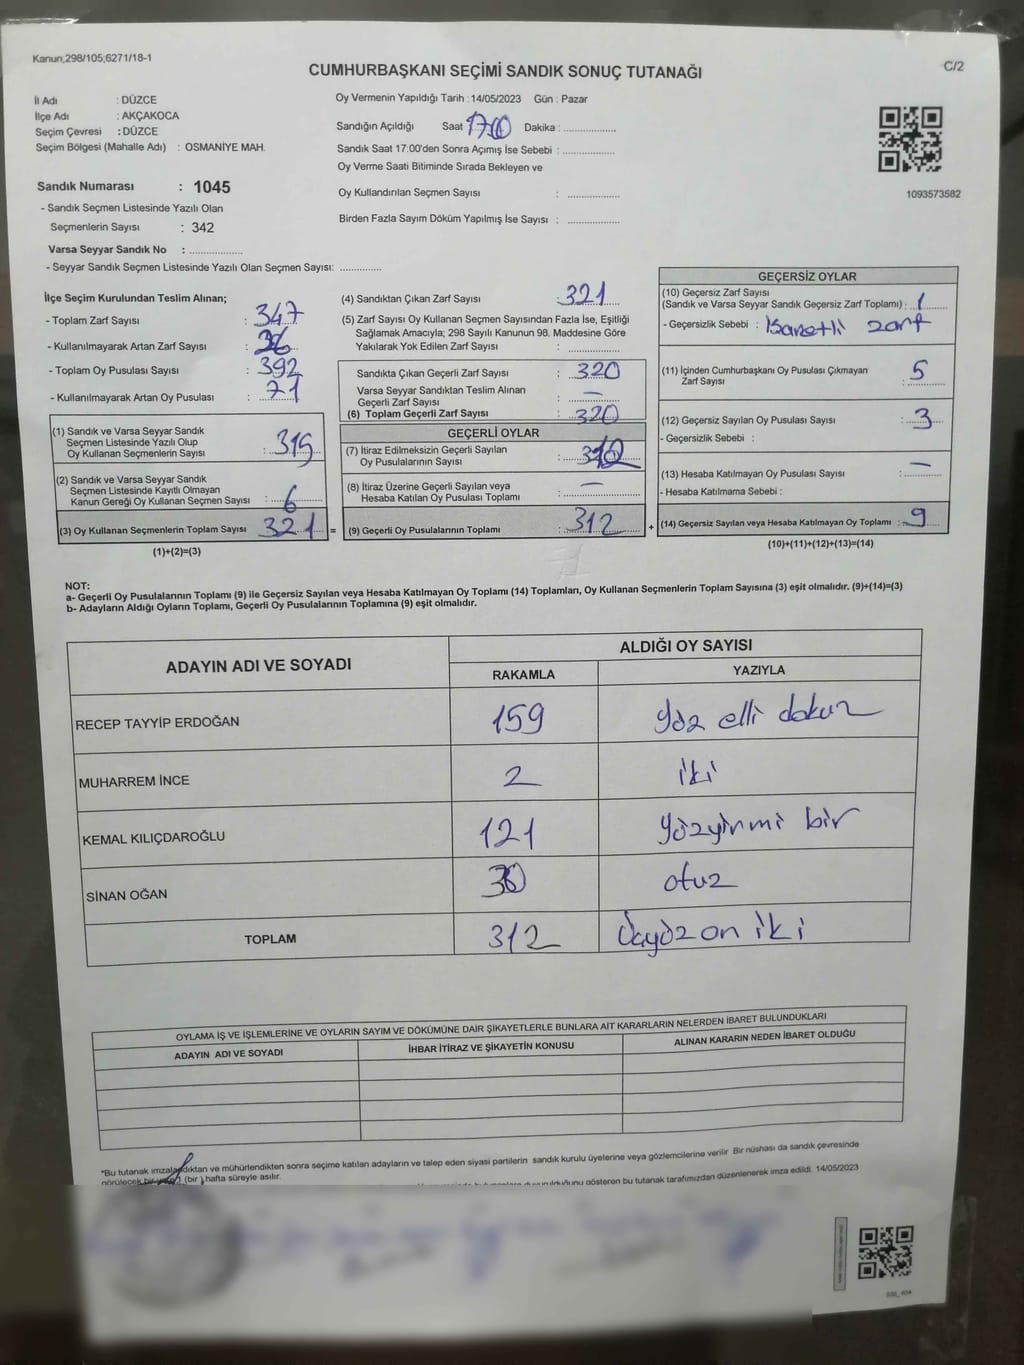 Kanun;298/105;6271/18-1
C/2
CUMHURBAŞKANI SEÇİMİ SANDIK SONUÇ TUTANAĞI
İl Adı : DÜZCE
İlçe Adı : AKÇAKOCA
Seçim Çevresi : DÜZCE
Seçim Bölgesi (Mahalle Adı) : OSMANİYE MAH.
Sandık Numarası : 1045
- Sandık Seçmen Listesinde Yazılı Olan
Seçmenlerin Sayısı : 342
Varsa Seyyar Sandık No : ................
- Seyyar Sandık Seçmen Listesinde Yazılı Olan Seçmen Sayısı: ............
Oy Vermenin Yapıldığı Tarih : 14/05/2023 Gün : Pazar
Sandığın Açıldığı Saat 17 00 Dakika : ................
Sandık Saat 17:00'den Sonra Açımış İse Sebebi : ................
Oy Verme Saati Bitiminde Sırada Bekleyen ve
Oy Kullandırılan Seçmen Sayısı : ................
Birden Fazla Sayım Döküm Yapılmış İse Sayısı : ................
1093573582
İlçe Seçim Kurulundan Teslim Alınan;
- Toplam Zarf Sayısı : 347
- Kullanılmayarak Artan Zarf Sayısı : 26
- Toplam Oy Pusulası Sayısı : 392
- Kullanılmayarak Artan Oy Pusulası : 71
(1) Sandık ve Varsa Seyyar Sandık
Seçmen Listesinde Yazılı Olup
Oy Kullanan Seçmenlerin Sayısı : 315
(2) Sandık ve Varsa Seyyar Sandık
Seçmen Listesinde Kayıtlı Olmayan
Kanun Gereği Oy Kullanan Seçmen Sayısı : 6
(3) Oy Kullanan Seçmenlerin Toplam Sayısı 321 =
(1)+(2)=(3)
(4) Sandıktan Çıkan Zarf Sayısı : 321
(5) Zarf Sayısı Oy Kullanan Seçmen Sayısından Fazla İse, Eşitliği
Sağlamak Amacıyla; 298 Sayılı Kanunun 98. Maddesine Göre
Yakılarak Yok Edilen Zarf Sayısı : ................
Sandıkta Çıkan Geçerli Zarf Sayısı : 320
Varsa Seyyar Sandıktan Teslim Alınan
Geçerli Zarf Sayısı : —
(6) Toplam Geçerli Zarf Sayısı : 320
GEÇERLİ OYLAR
(7) İtiraz Edilmeksizin Geçerli Sayılan
Oy Pusulalarının Sayısı : 312
(8) İtiraz Üzerine Geçerli Sayılan veya
Hesaba Katılan Oy Pusulası Toplamı : —
(9) Geçerli Oy Pusulalarının Toplamı : 312 +
GEÇERSİZ OYLAR
(10) Geçersiz Zarf Sayısı
(Sandık ve Varsa Seyyar Sandık Geçersiz Zarf Toplamı) : 1
- Geçersizlik Sebebi : İşaretli zarf
(11) İçinden Cumhurbaşkanı Oy Pusulası Çıkmayan
Zarf Sayısı : 5
(12) Geçersiz Sayılan Oy Pusulası Sayısı : 3
- Geçersizlik Sebebi :
(13) Hesaba Katılmayan Oy Pusulası Sayısı : —
- Hesaba Katılmama Sebebi :
(14) Geçersiz Sayılan veya Hesaba Katılmayan Oy Toplamı : 9
(10)+(11)+(12)+(13)=(14)
NOT:
a- Geçerli Oy Pusulalarının Toplamı (9) ile Geçersiz Sayılan veya Hesaba Katılmayan Oy Toplamı (14) Toplamları, Oy Kullanan Seçmenlerin Toplam Sayısına (3) eşit olmalıdır. (9)+(14)=(3)
b- Adayların Aldığı Oyların Toplamı, Geçerli Oy Pusulalarının Toplamına (9) eşit olmalıdır.
ADAYIN ADI VE SOYADI
ALDIĞI OY SAYISI
RAKAMLA YAZIYLA
RECEP TAYYİP ERDOĞAN 159 Yüz elli dokuz
MUHARREM İNCE 2 iki
KEMAL KILIÇDAROĞLU 121 yüzyirmi bir
SİNAN OĞAN 30 otuz
TOPLAM 312 Üçyüz on iki
OYLAMA İŞ VE İŞLEMLERİNE VE OYLARIN SAYIM VE DÖKÜMÜNE DAİR ŞİKAYETLERLE BUNLARA AİT KARARLARIN NELERDEN İBARET BULUNDUKLARI
ADAYIN ADI VE SOYADI İHBAR İTİRAZ VE ŞİKAYETİN KONUSU ALINAN KARARIN NEDEN İBARET OLDUĞU
*Bu tutanak imzalandıktan ve mühürlendikten sonra seçime katılan adayların ve talep eden siyasi partilerin sandık kurulu üyelerine veya gözlemcilerine verilir Bir nüshası da sandık çevresinde
görülecek bir (bir) hafta süreyle asılır.
gösteren bu tutanak tarafımızdan düzenlenerek imza edildi. 14/05/2023